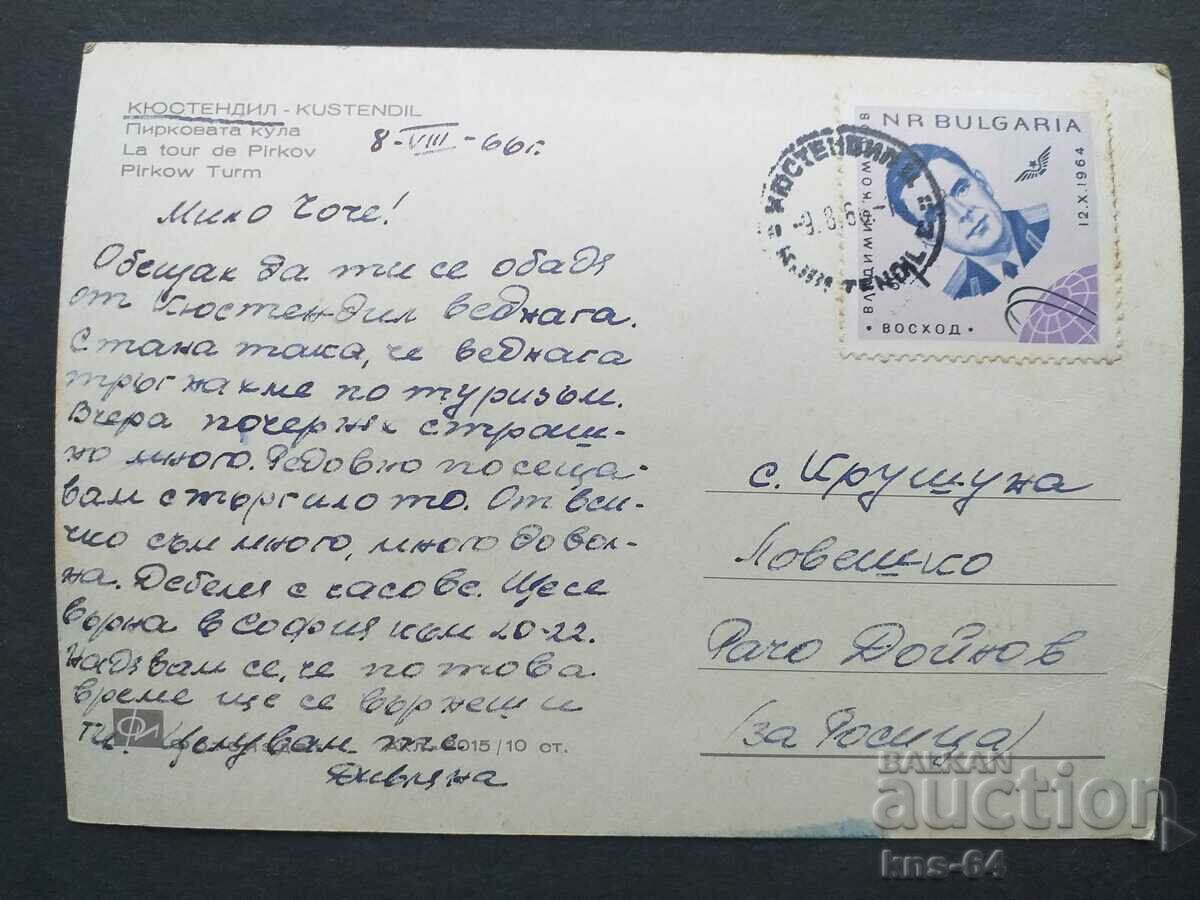 КЮСТЕНДИЛ - KUSTENDIL
Пирковата кула
La tour de Pirkov
Pirkow Turm
8-VIII-66г.
Мило Чоче!
Обещах да ти се обадя
от Кюстендил веднага.
Стана така, че веднага
тръгнахме по туризъм.
Вчера почернях страш-
но много. Редовно посеща-
вам стъргилото. От вси-
чко съм много, много довол-
на. Дебелея с часове. Ще се
върна в София към 20-22.
Надявам се, че по това
време ще се върнеш и
ти. Целувам те.
2015/10 ст.
NR BULGARIA
ВЛАДИМИР КОМАРОВ
12.X.1964
• ВОСХОД •
КЮСТЕНДИЛ
-9.8.6
TENDIL
с. Крушуна
Ловешко
Рачо Дойнов
(за Росица)
BALKAN
auction
kns-64